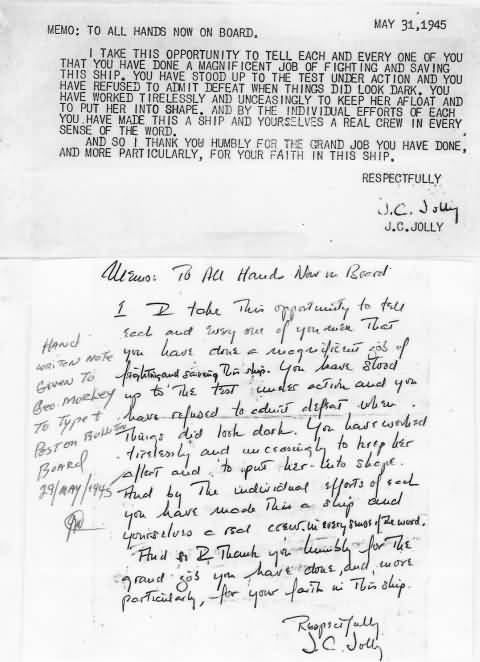 MAY 31,1945
MEMO: TO ALL HANDS NOW ON BOARD.
I TAKE THIS OPPORTUNITY TO TELL EACH AND EVERY ONE OF YOU
THAT YOU HAVE DONE A MAGNIFICENT JOB OF FIGHTING AND SAVING
THIS SHIP. YOU HAVE STOOD UP TO THE TEST UNDER ACTION AND YOU
HAVE REFUSED TO ADMIT DEFEAT WHEN THINGS DID LOOK DARK. YOU
HAVE WORKED TIRELESSLY AND UNCEASINGLY TO KEEP HER AFLOAT AND
TO PUT HER INTO SHAPE. AND BY THE INDIVIDUAL EFFORTS OF EACH
YOU HAVE MADE THIS A SHIP AND YOURSELVES A REAL CREW IN EVERY
SENSE OF THE WORD.
AND SO I THANK YOU HUMBLY FOR THE GRAND JOB YOU HAVE DONE,
AND MORE PARTICULARLY, FOR YOUR FAITH IN THIS SHIP.
RESPECTFULLY
J.C. Jolly
J.C.JOLLY
Memo: To All Hands Now on Board
I I take this opportunity to tell
each and every one of you men that
you have done a magnificent job of
fighting and saving this ship. You have stood
up to the test under action and you
have refused to admit defeat when
things did look dark. You have worked
tirelessly and unceasingly to keep her
afloat and to put her into shape.
And by the individual efforts of each
you have made this a ship and
yourselves a real crew in every sense of the word.
And so I thank you humbly for the
grand job you have done, and more
particularly, for your faith in this ship.
Respectfully
J.C. Jolly
HAND
WRITTEN NOTE
GIVEN TO
Geo. Morkey
TO TYPE &
POST ON BULLETIN
BOARD
29/MAY/1945